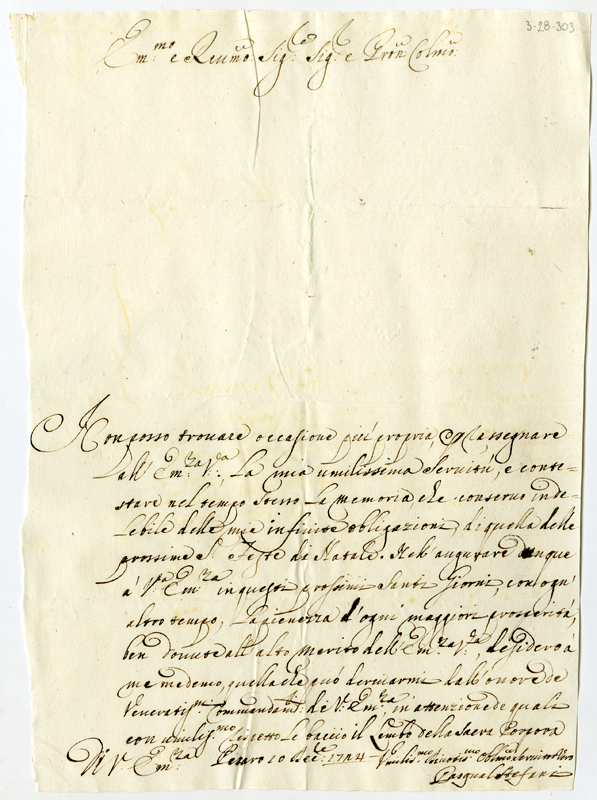 3-28-303
Em.mo e Reu.mo Sig.re Sig.re e Pron Colmo.
Non posso trouare occasione più propria p Rassegnare
all' Em.za V.ra La mia umilissima Seruitù, e conte=
stare nel tempo stesso La memoria che conseruo inde=
Lebile delle mie infinite obligazioni, di quella delle
prossime S.e Feste di Natale. Nell' augurare dunque
a' V.ra Em.za in questi prossimi Santi Giorni, com'ogni
altro tempo, La pienezza d'ogni maggiori prosperità,
ben douute all' alto merito dell' Em.za V.ra desidero à
me medemo, quella che può deriuarmi dall' onore de
Veneratis.mi Commandam.ti de V.ra Em.za in attenzione de quali
con umilis.mo rispetto Le baccio il Lembo della Sacra Porpora
Di V.ra Em.za Pesaro 20 Dec.re 1724 = Vmilis.mo Diuotis.mo Oblmo Seruitor Vero
Pasqual Stefani